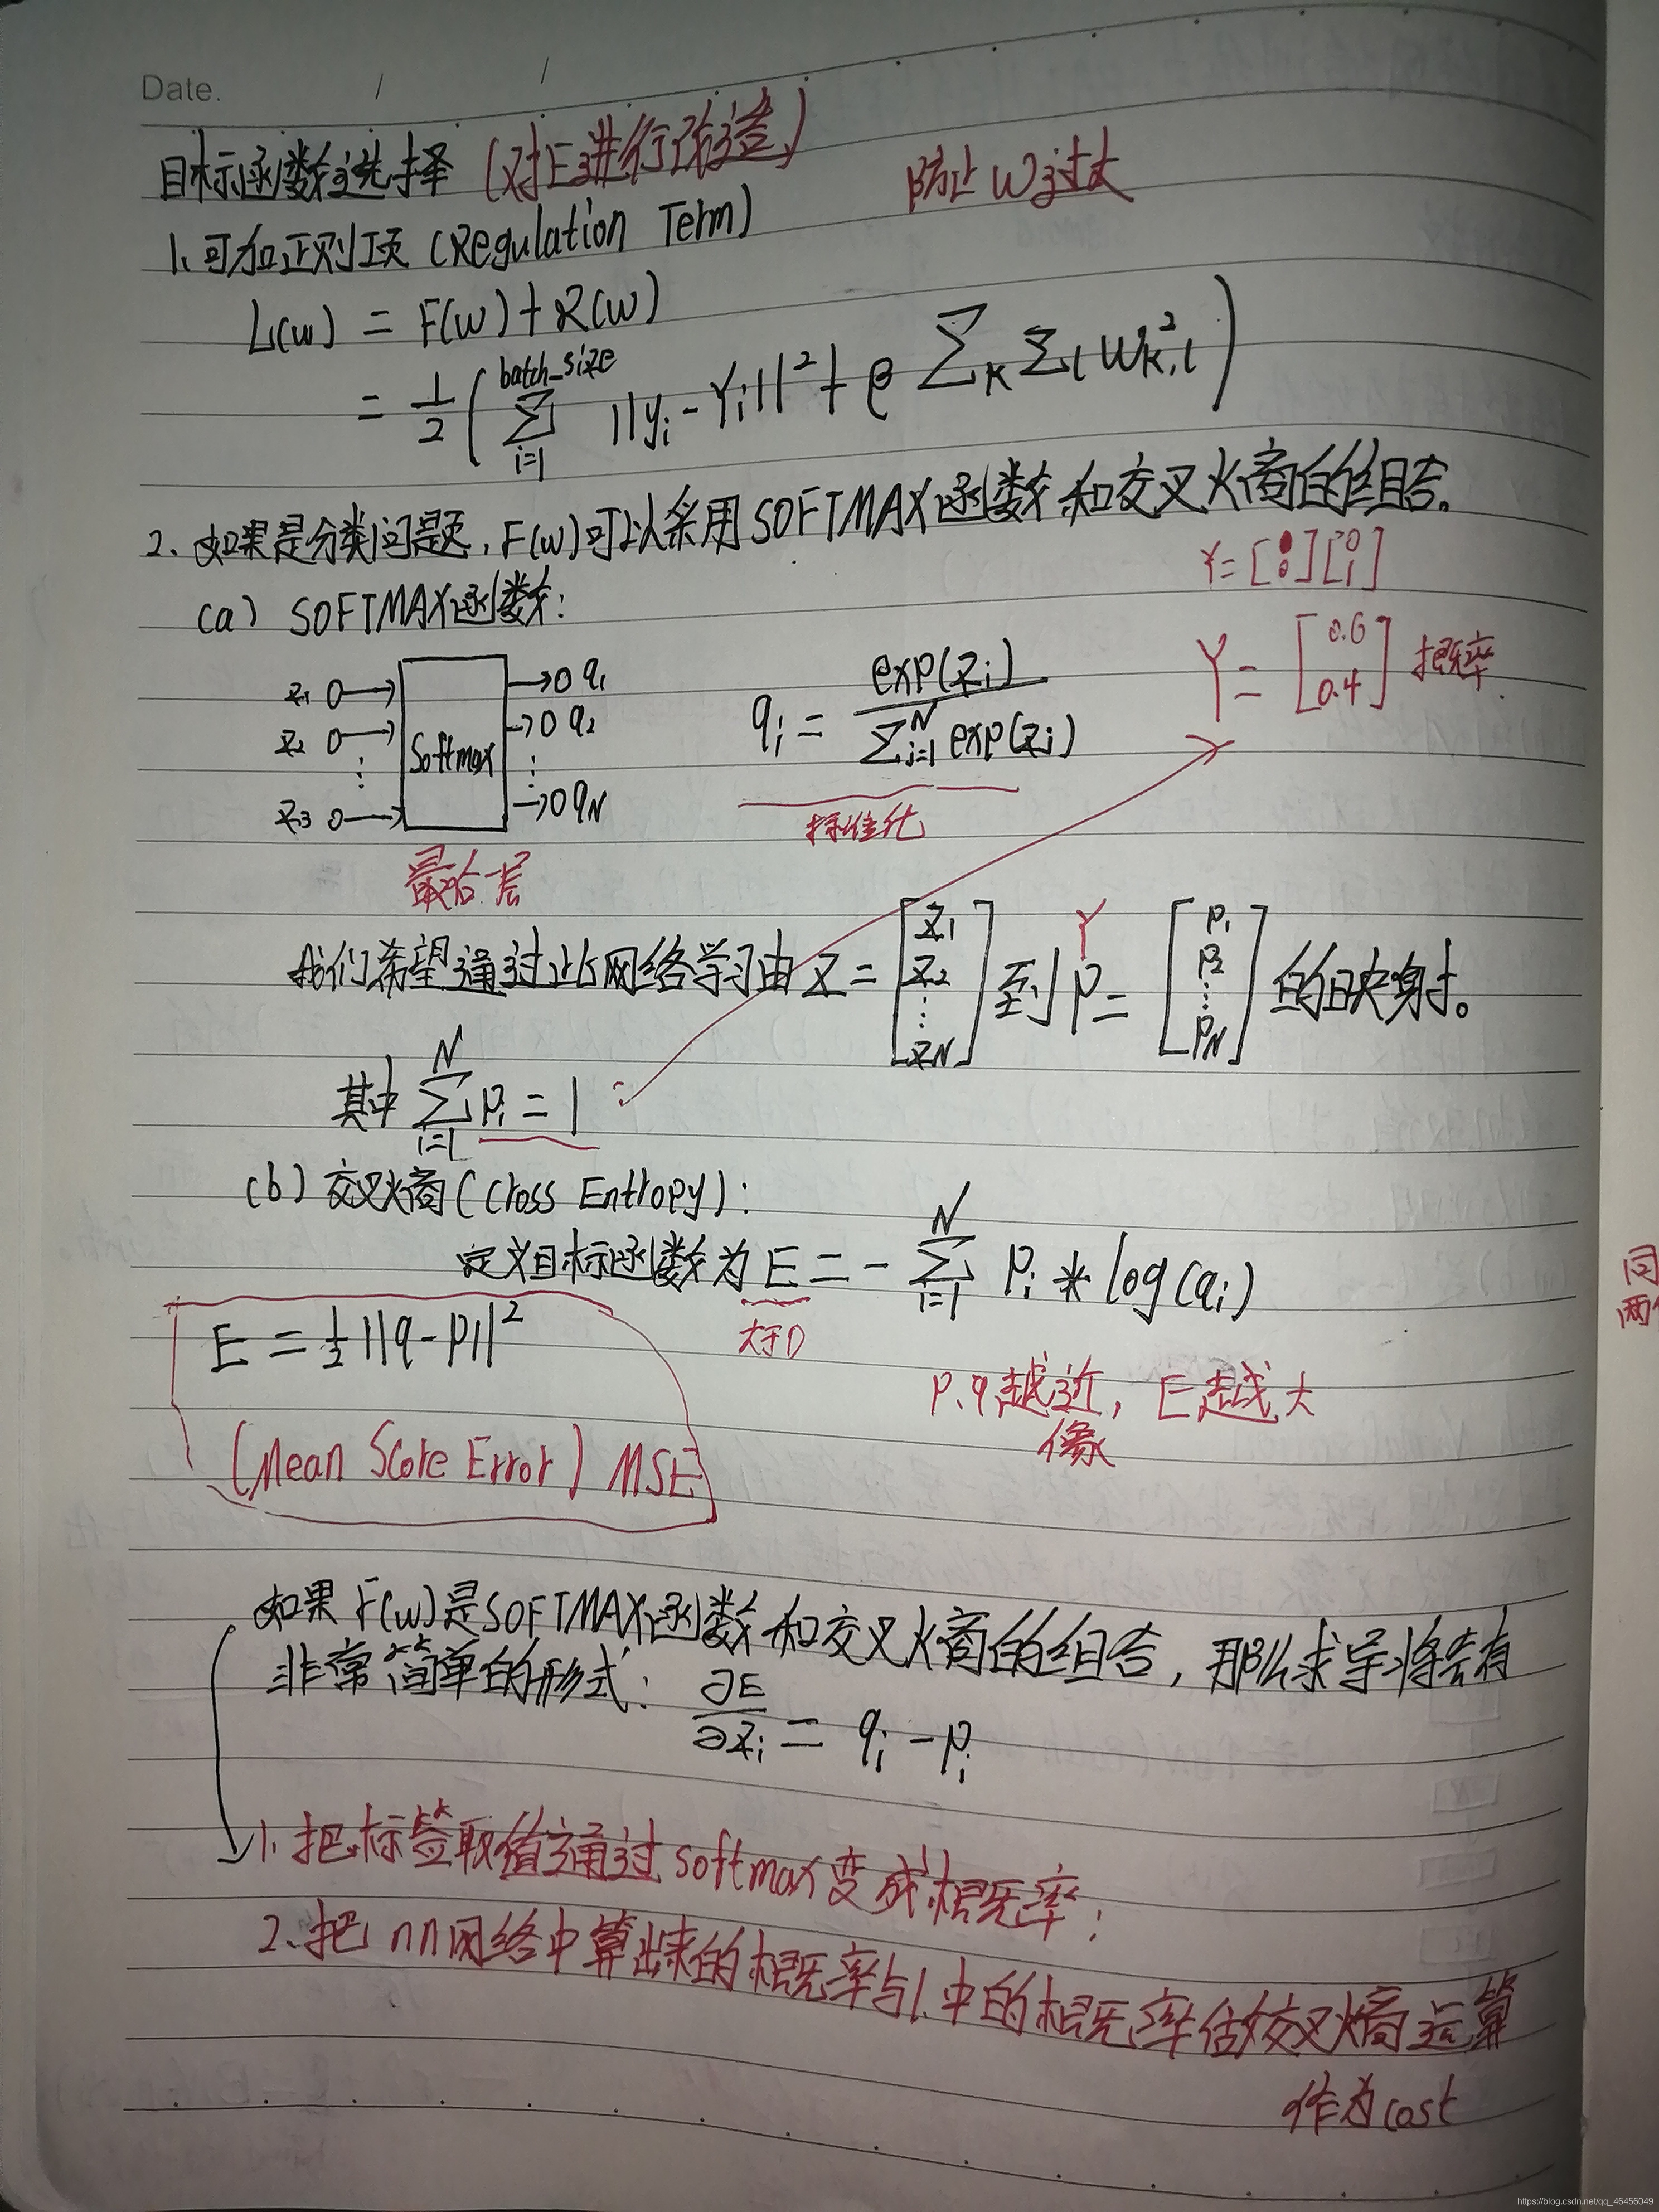 Date. / /
目标函数选择 (对E进行改造) 防止W过大
1、可加正则项 (Regulation Term)
L(w) = F(w) + R(w)
= 1/2 ( ∑_{i=1}^{batch_size} ||y_i - Y_i||² + β ∑_k ∑_l W_{k,l}² )
2、如果是分类问题,F(w)可以采用SOFTMAX函数和交叉熵的组合。
Y = [ ] [0 1]
(a) SOFTMAX函数:
Y = [0.6 0.4] 概率
z1 O→ →O q1
z2 O→ →O q2
⋮ Softmax ⋮
z3 O→ →O qN
q_i = exp(z_i) / ∑_{i=1}^{N} exp(z_i)
标准化
最后一层
我们希望通过此网络学习由 Z = [z1 z2 ⋮ zN] 到 P = [P1 P2 ⋮ PN] 的映射。
Y
其中 ∑_{i=1}^{N} P_i = 1
(b) 交叉熵 (Cross Entropy):
定义目标函数为 E = - ∑_{i=1}^{N} P_i * log(q_i)
大于0
E = 1/2 ||q - p||²
(Mean Score Error) MSE
P、q越近, E越大
像
如果F(w)是SOFTMAX函数和交叉熵的组合,那么求导将会有
非常简单的形式: ∂E/∂z_i = q_i - p_i
1、把标签取值通过softmax变成概率;
2、把nn网络中算出来的概率与1.中的概率做交叉熵运算
作为cost
同
两
https://blog.csdn.net/qq_46456049